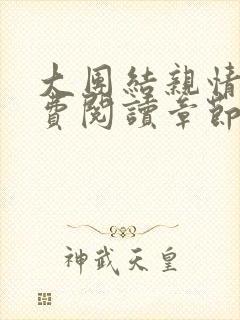 大團結親情
費閱讀章節
神武天皇